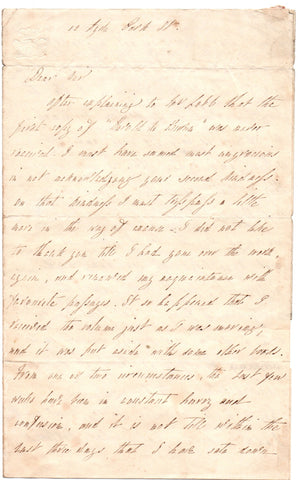 Dear Sir
After explaining to Mr Lobb that the
first copy of " to " was never
received. I must have seemed most ungracious
in not acknowledging your second kindness.
On that kindness I must trespass a little
more in the way of excuse. I did not like
to thank you till I had gone over the work
again, and renewed my acquaintance with
favourite passages. It so happened that I
received the volume just as I was moving,
and it was put aside with some other books.
From one or two circumstances, the last few
weeks have been in constant hurry and
confusion, and it is not till within the
last three days that I have sate down